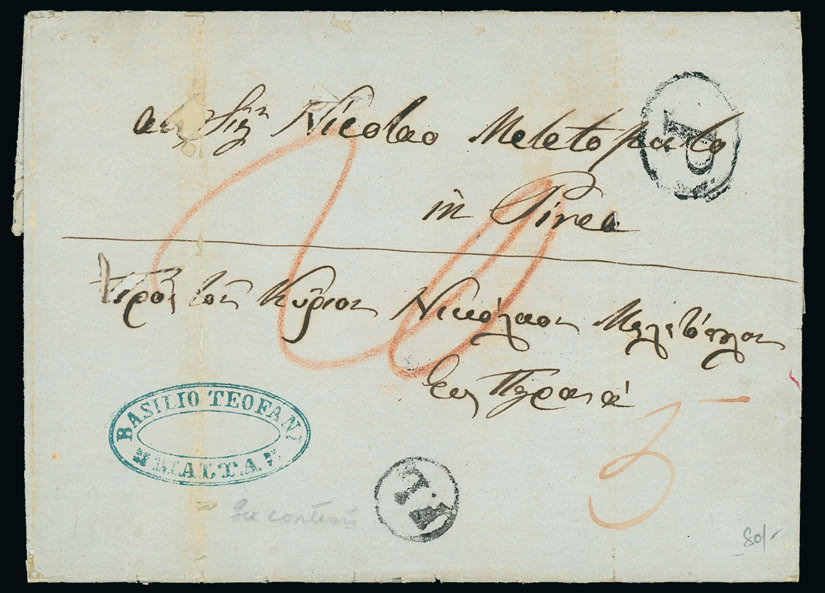 al Sigr Nicolao Meletopulo
P
in Pirea
20
Πρὸς τὸν Κύριον Νικόλαον Μελετόπουλον
Εἰς Πειραιά
BASILIO TEOFANI
MALTA
5
See contents
80/-